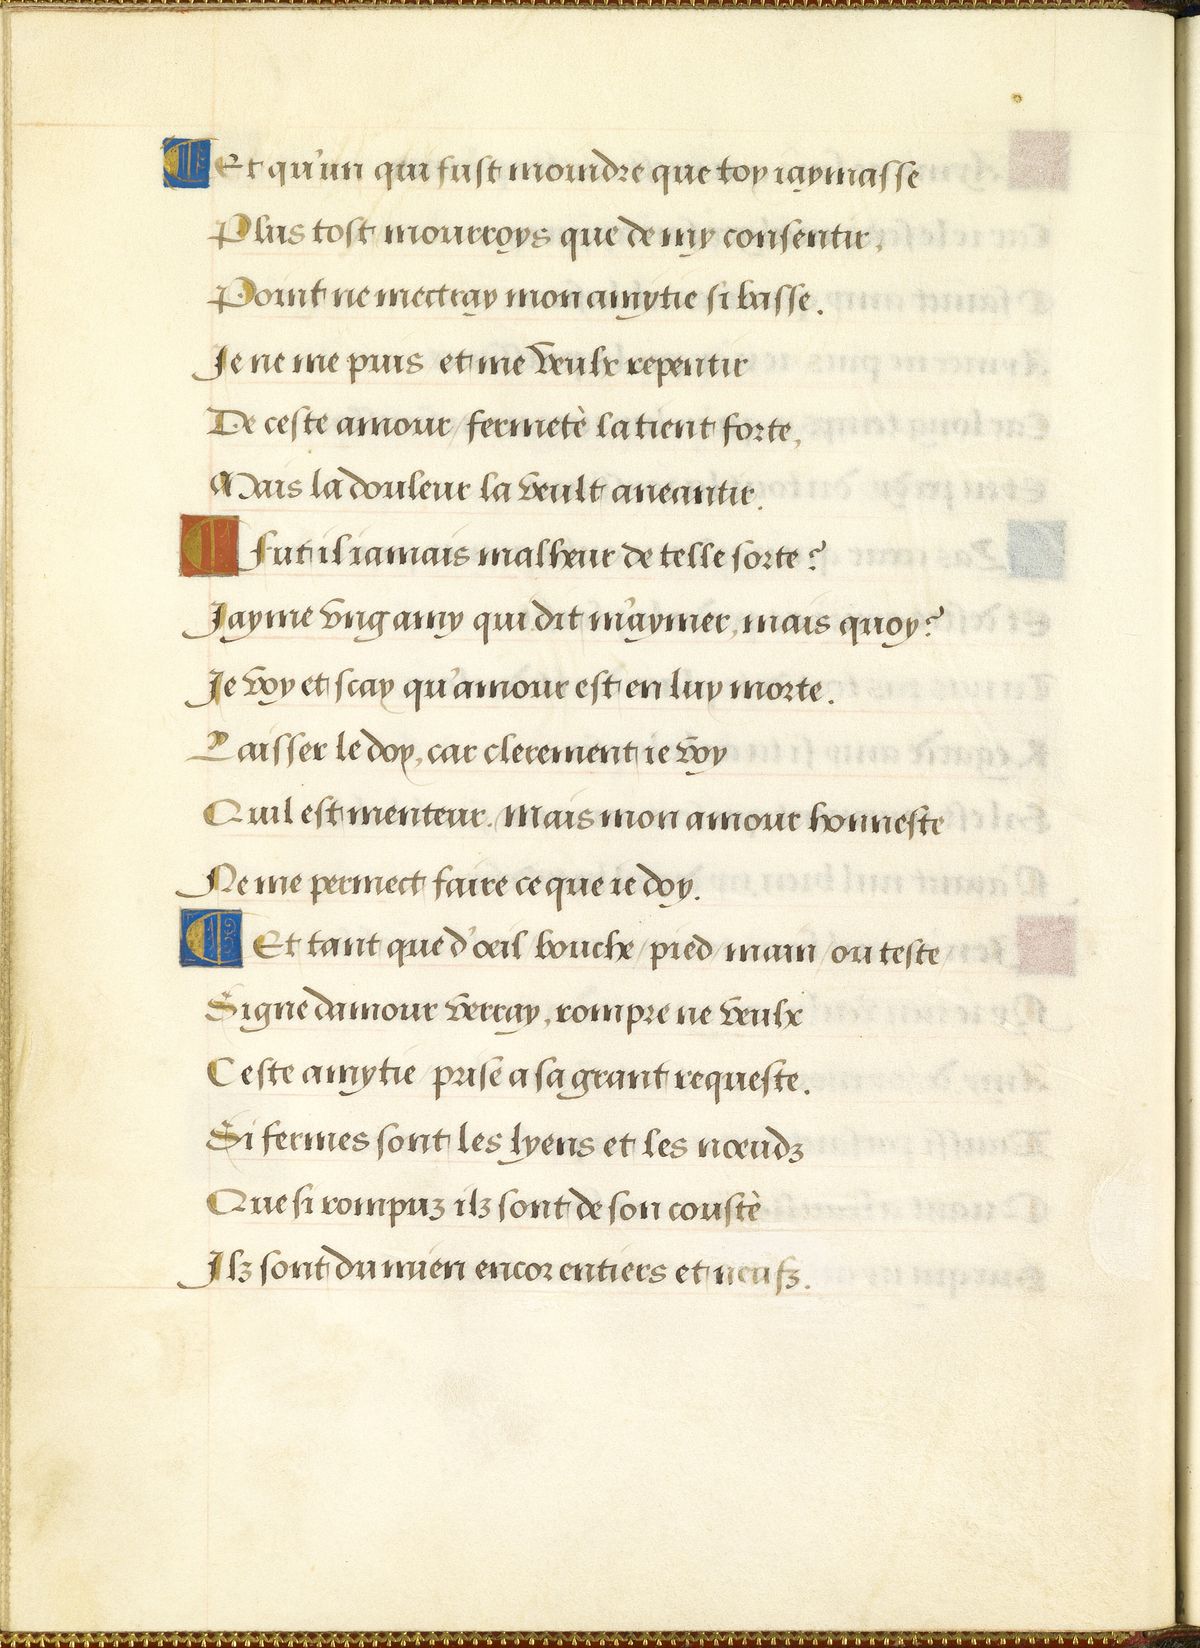 Et qu'un qui fust moindre que toy iaymasse
Plus tost mourroys que de my consentir,
Point ne mectray mon amytie si basse.
Je ne me puis et me veulx repentir
De ceste amour / fermetè la tient forte,
Mais la douleur la veult aneantir.
Fut il iamais malheur de telle sorte?
Jayme vng amy qui dit m'aymer, mais quoy?
Je voy et scay qu'amour est en luy morte.
Laisser le doy, car clerement ie voy
Quil est menteur. Mais mon amour honneste
Ne me permect faire ce que ie doy.
Et tant que d'œil bouche / pied / main / ou teste /
Signe damour verray, rompre ne veulx
Ceste amytie / prise a sa grant requeste.
Si fermes sont les lyens et les nœudz
Que si rompuz ilz sont de son coustè
Ilz sont du mien encor entiers et neufz.